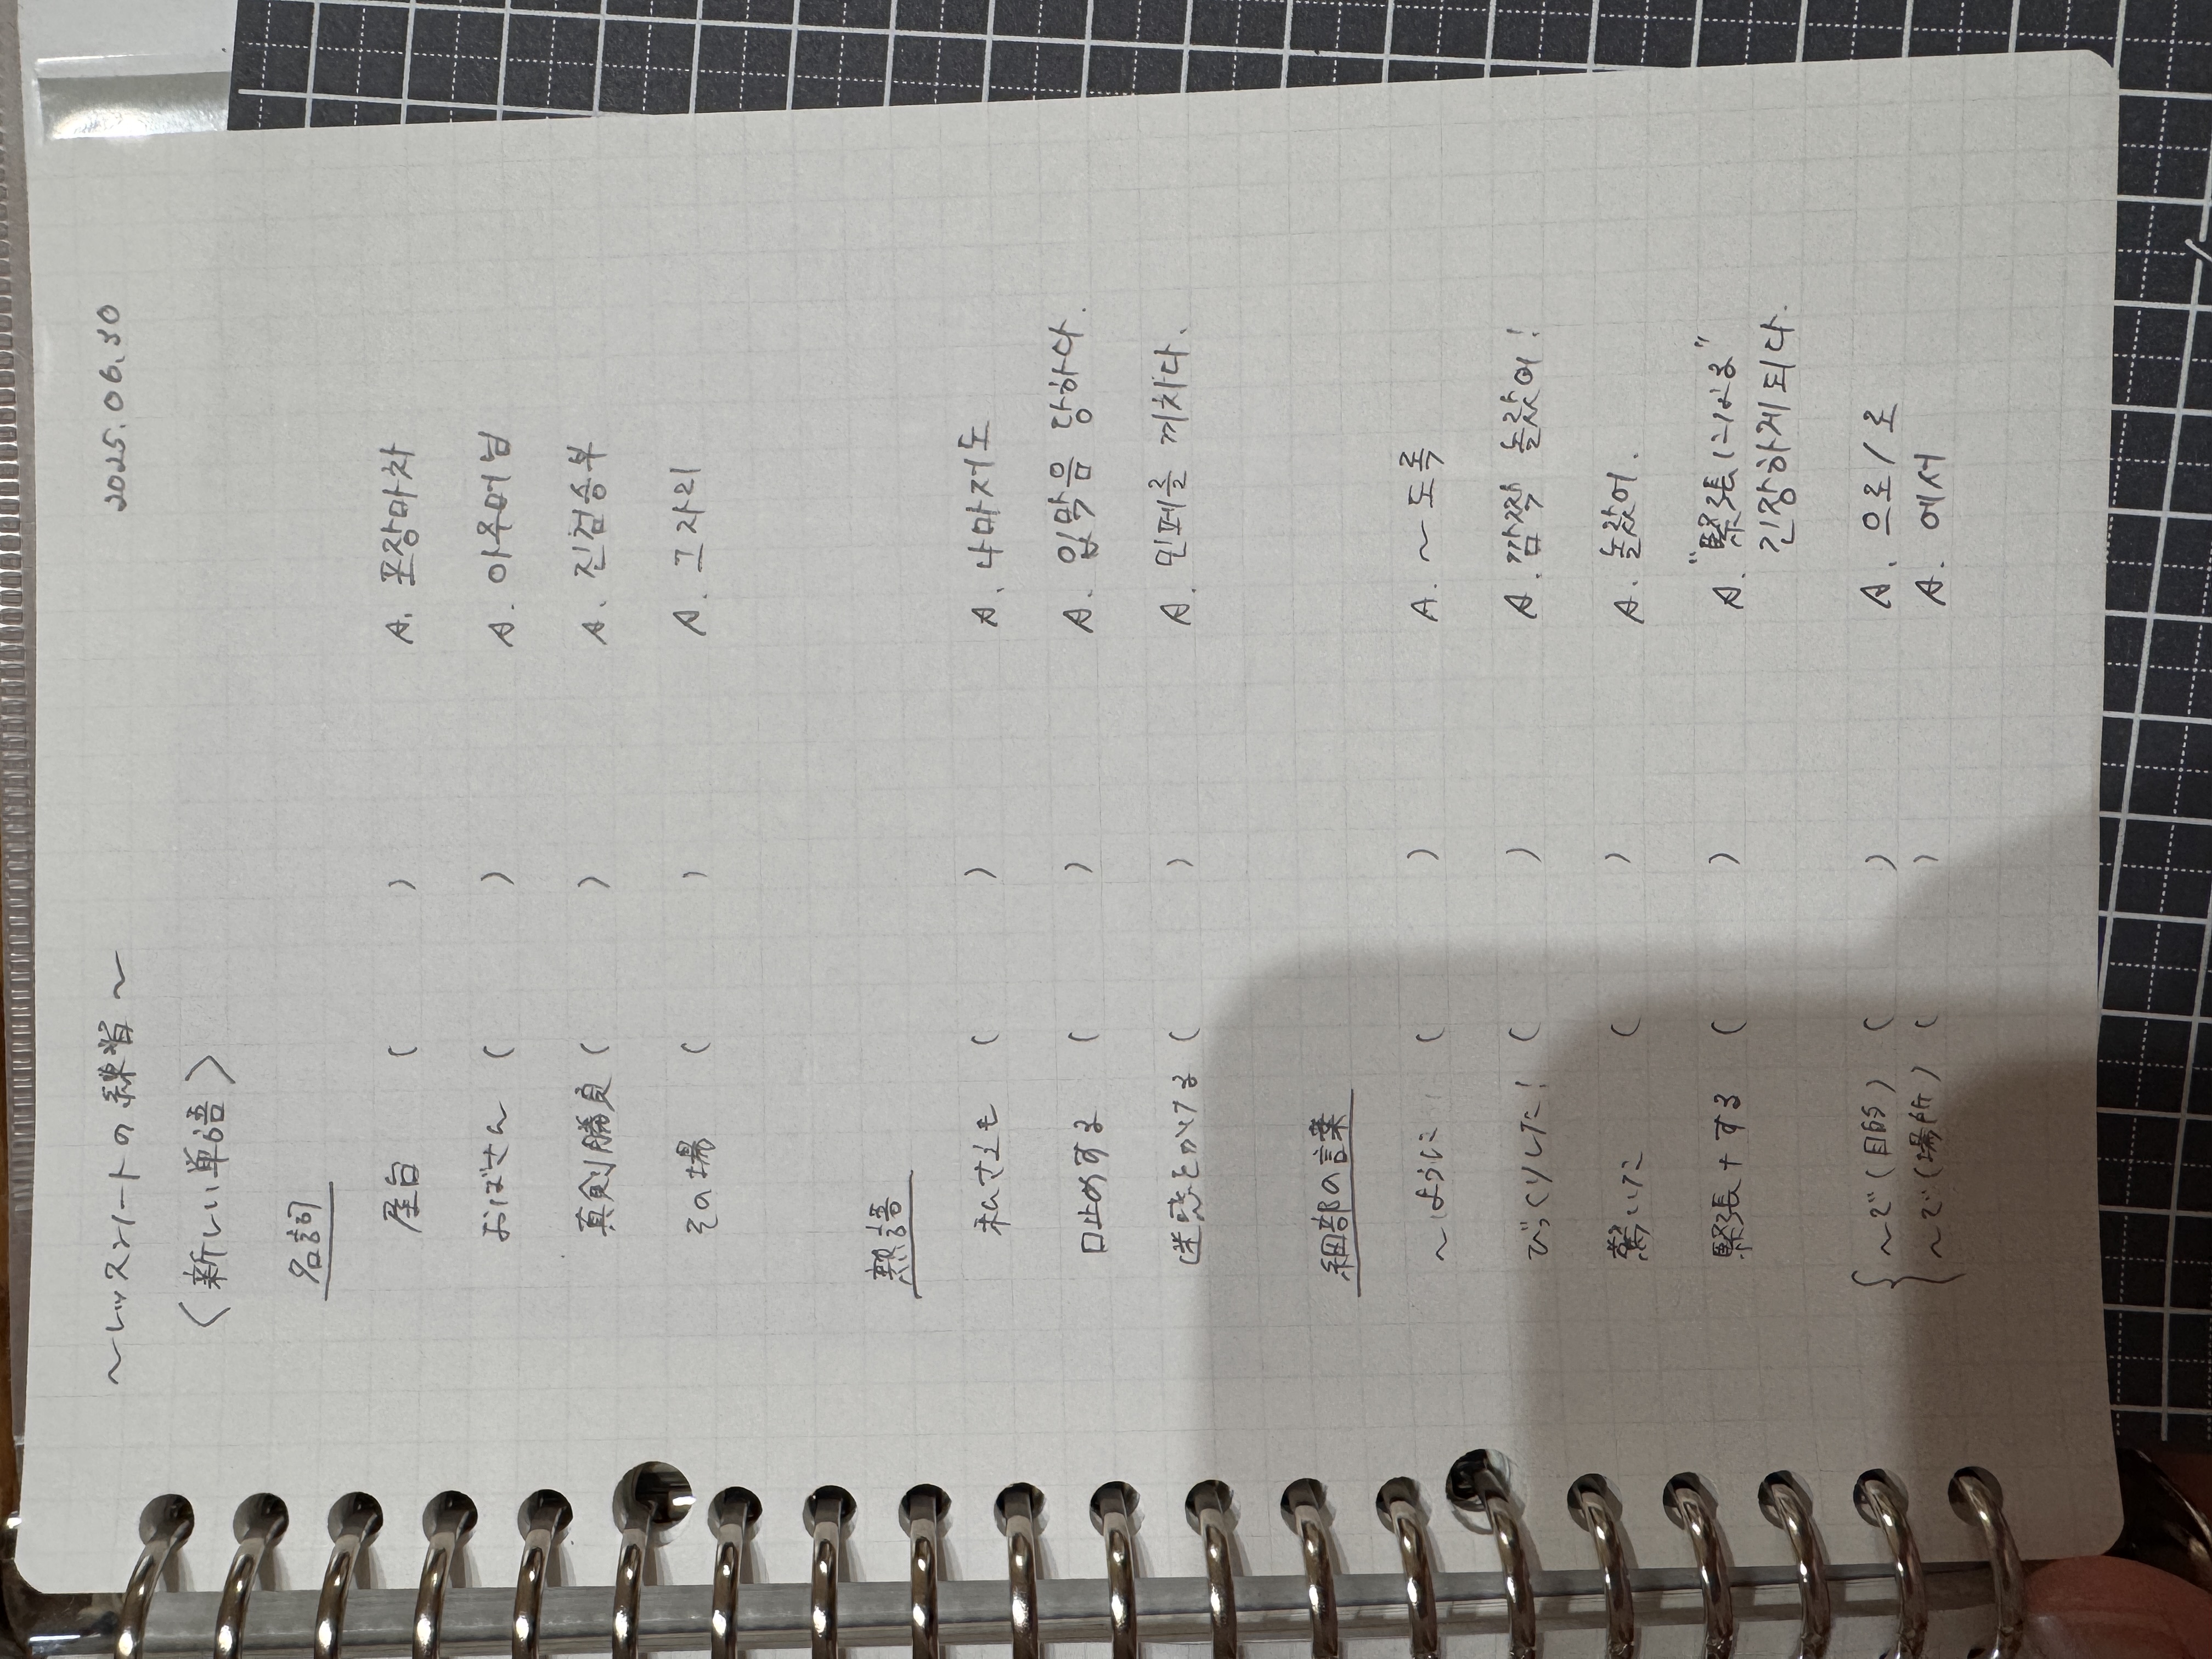 ～レッスンノートの練習～ 2025.06.30
〈新しい単語〉
名詞
屋台 ( ) A. 포장마차
おばさん ( ) A. 아주머님
真剣勝負 ( ) A. 진검승부
その場 ( ) A. 그 자리
熟語
私さえも ( ) A. 나마저도
口止めする ( ) A. 입막음 당하다.
迷惑をかける ( ) A. 민폐를 끼치다.
細部の言葉
～ように ( ) A. ～도록
びっくりした! ( ) A. 깜짝 놀랐어!
驚いた ( ) A. 놀랐어.
緊張+する ( ) A. "緊張になる"
긴장하게 되다.
～で(目的) ( ) A. 으로/로
～で(場所) ( ) A. 에서